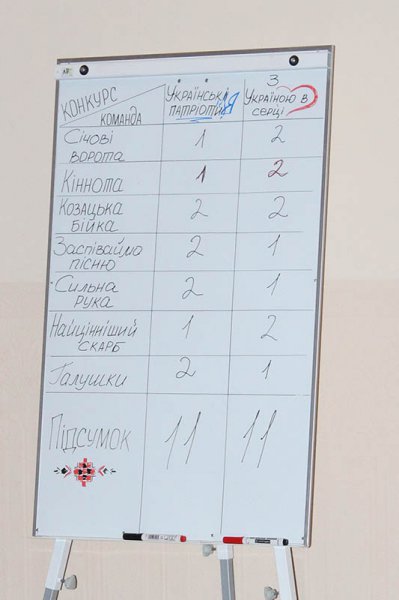 КОНКУРС
КОМАНДА
УКРАЇНСЬКІ
ПАТРІОТИ
З
УКРАЇНОЮ В
СЕРЦІ
СІЧОВІ
ВОРОТА
1
2
КІННОТА
1
2
КОЗАЦЬКА
БІЙКА
2
2
ЗАСПІВАЙМО
ПІСНЮ
2
1
СИЛЬНА
РУКА
2
1
НАЙЦІННІШИЙ
СКАРБ
1
2
ГАЛУШКИ
2
1
ПІДСУМОК
11
11